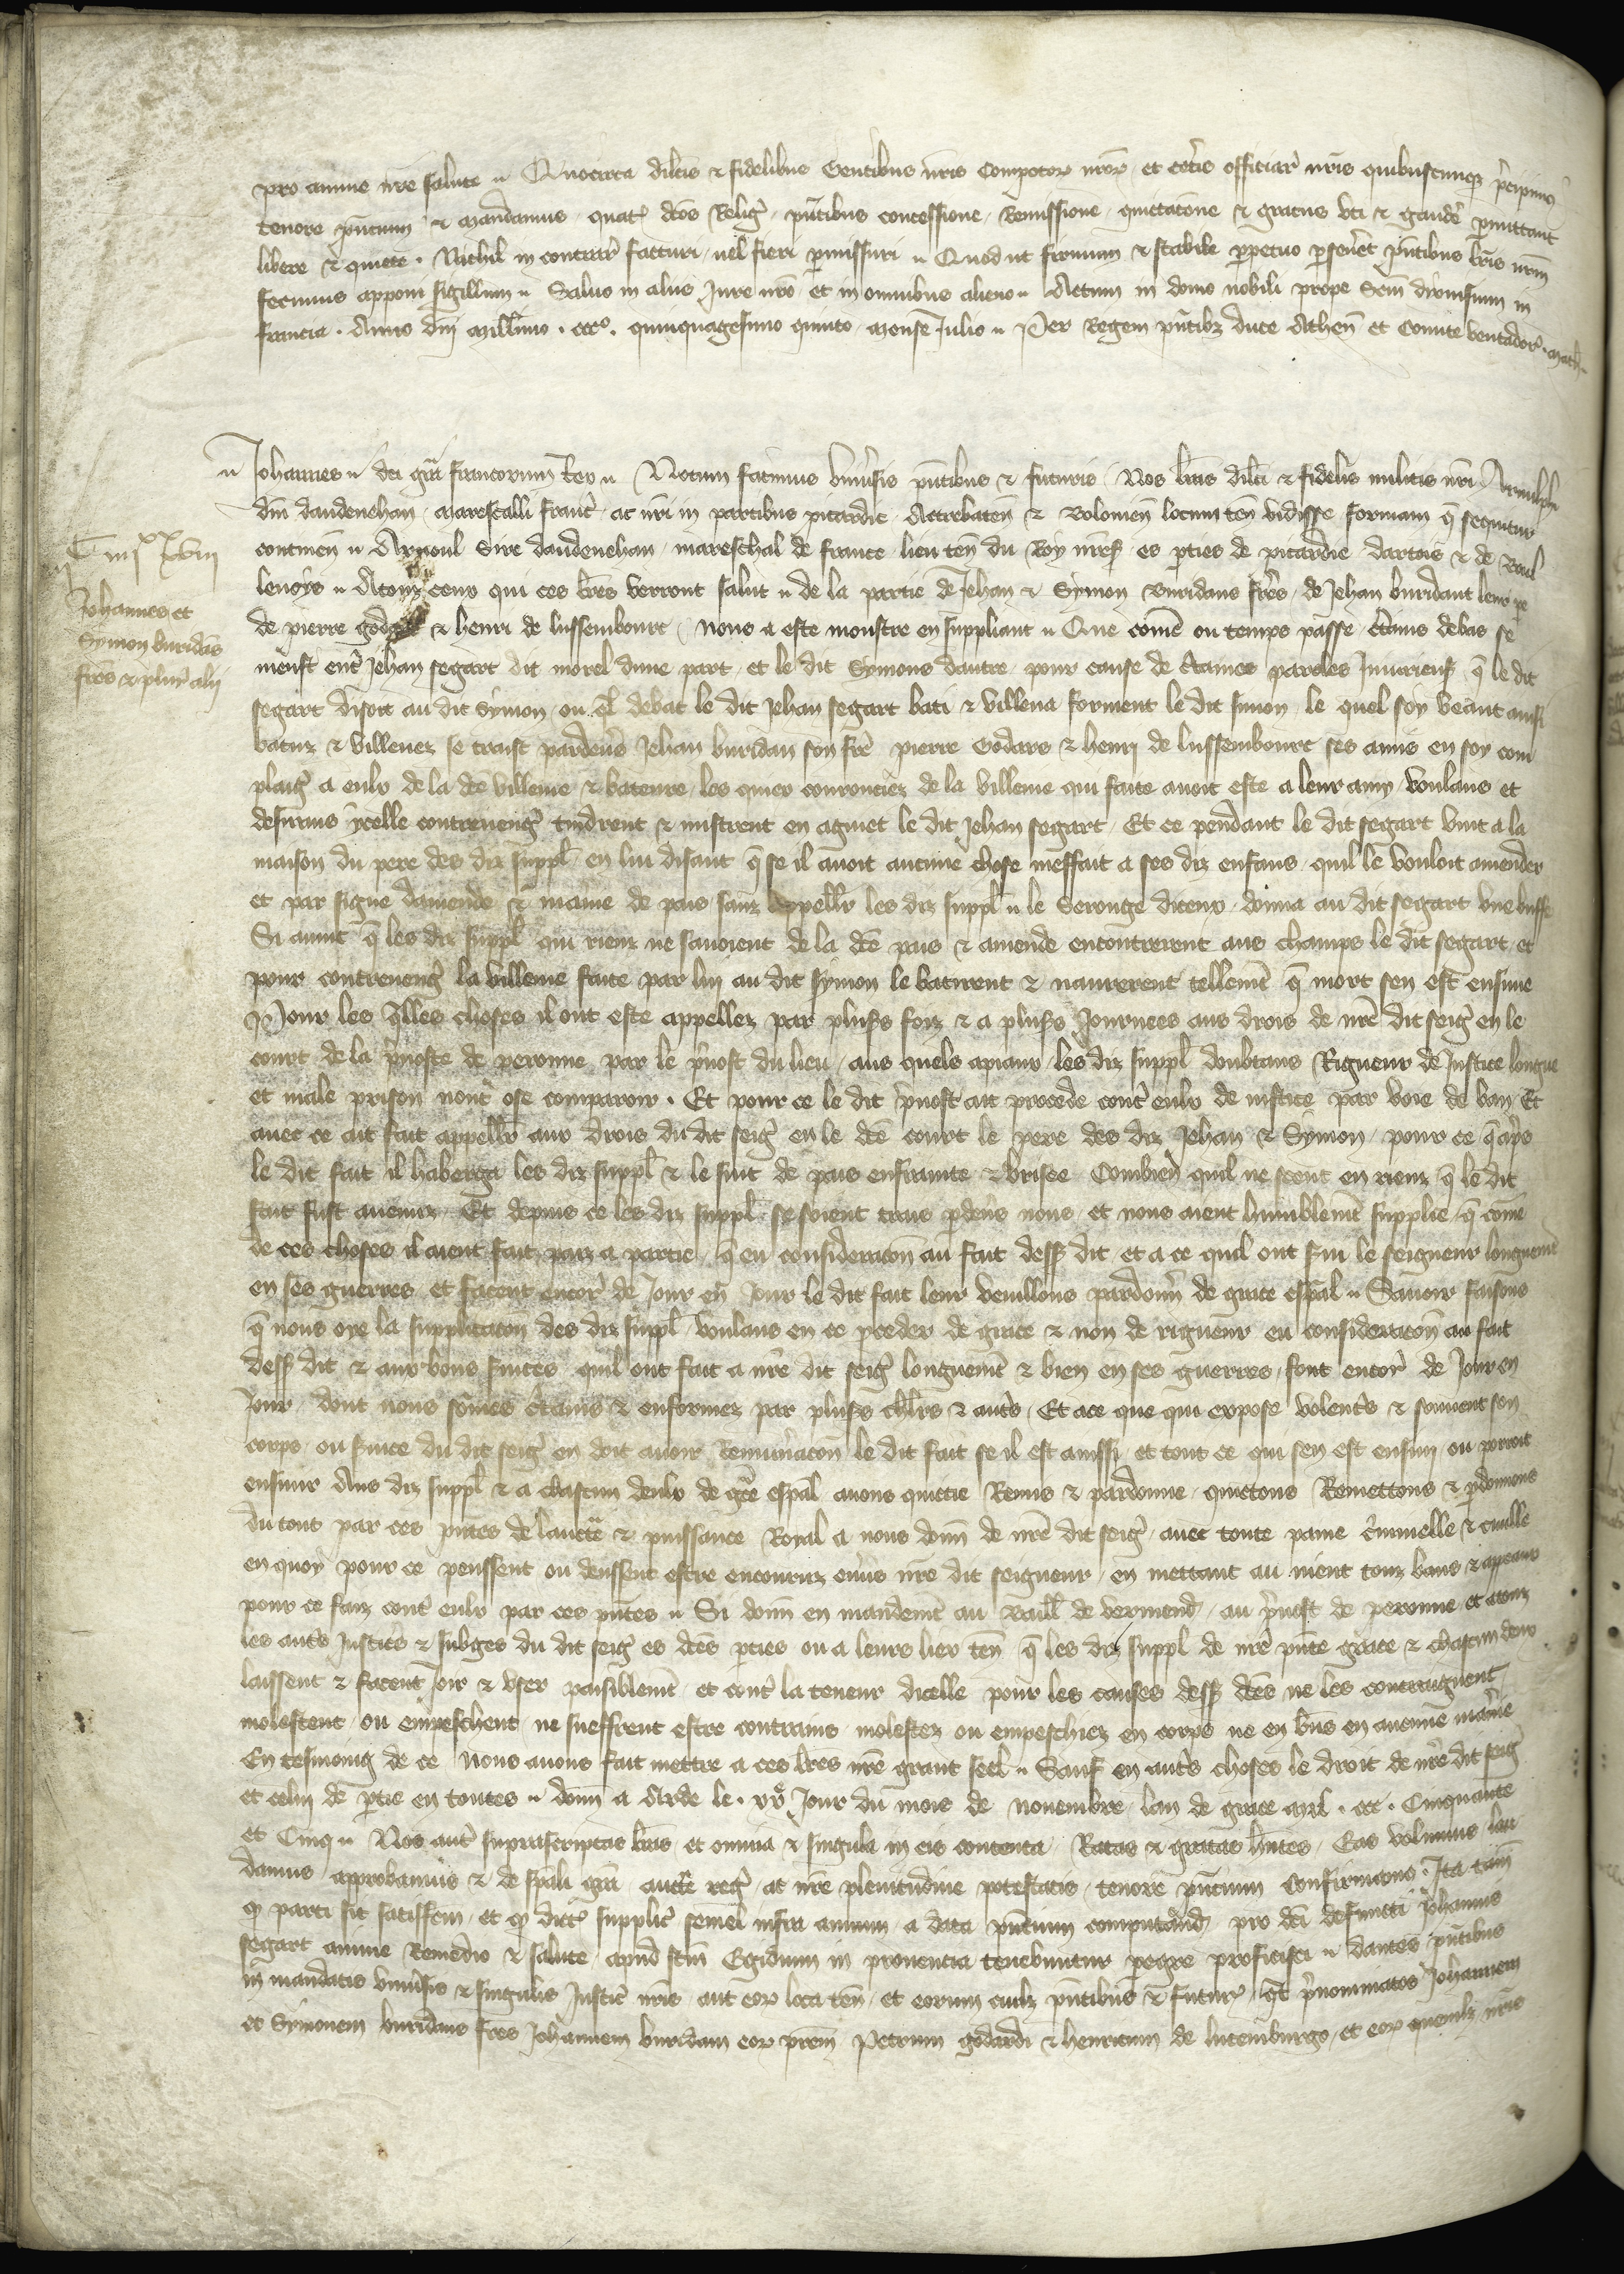 pro anime nre salute Quocirca dilcis & fidelibus Gentibus nris Compotor nror et ceteris officiar nris quibuscumque precipimus
tenore pntium & mandamus quatin dcos Relig pntibus concessione Remissione quittatone & gracia uti & gaudere pmittant
libere & quiete Nichil in contrar facturi uel fieri pmissuri Quod ut firmum & stabile ppetuo pseveret pntibus lris nrm
fecimus apponi sigillum Saluo in aliis Jure nro et in omnibus alieno Actum in domo nobili prope Scm dionisium in
francia Anno dni millimo ccco quinquagesimo quinto mense Julio Per Regem pntibz duce Athen et Comite ventador math
Johannes dei gra francorum Rex Notum facimus universis pntibus & futuris Nos lras dilci & fidelis militis nri Arnulphi
dni daudenehan marescalli franc ac nri in partibus picardie Attrebaten & Bolonien locum ten vidisse formam q sequitur
continen Arnoul Sire daudenehan mareschal de france lieu ten du Roy nres es pties de picardie dartois & de Boul
lenoys Atouz ceux qui ces lres verront salut de la partie de Jehan & Symon Buridans freres de Jehan buridant leur pe
de pierre godart & henri de lussembourc nous a este monstre en suppliant Que come ou temps passe ctains debas se
meust entre Jehan segart dit morel dune part et le dit Symons dautre pour cause de ctaines paroles Iniurieus q le dit
segart disoit au dit Symon ou ql debat le dit Jehan segart bati & villena forment le dit simon le quel soy veant ainsi
batuz & villenez se traist pardevers Jehan buridan son fre pierre Godars & henri de lussembourc ses amis en soy com
plaig a eulx de la dce villenie & bateure les quiex courouciez de la villenie qui faite avoit este a leur amy voulans et
desirans ycelle contrevengier tindrent & mistrent en aguet le dit Jehan segart Et ce pendant le dit segart vint a la
maison du pere des diz suppl en lui disant q se il avoit aucune chose meffait a ses diz enfans quil le vouloit amender
et par signe damende & maniere de pais sanz appeller les diz suppl le Serouge diceux donna au dit segart une buffe
Si avint q les diz suppl qui riens ne savoient de la dce pais & amende encontrerent aus champs le dit segart et
pour contrevengier la villenie faite par lui au dit symon le batirent & navrerent tellemt q mort sen est ensuie
Pour les qlles choses il ont este appellez par pluss foiz & a pluss Journees aus drois de nre dit seig en le
court de la pvoste de peronne par le pvost du lieu aus quels apiaux les diz suppl doubtans Rigueur de Justice longue
et male prison nont ose comparoir Et pour ce le dit pvost ait procede contre eulx de iustice par voie de ban Et
avec ce ait fait appeller aux drois du dit seig en le dce court le pere des diz Jehan & Symon pour ce q aps
le dit fait il haberga les diz suppl & le suit de pais enfrainte & brisee Combien quil ne sceut en riens q le dit
fait fust avenuz Et depuis ce les diz suppl se soient traiz pdevers nous et nous aient humblemt supplie q come
de ces choses il aient fait paiz a partie q en consideracon au fait dess dit et a ce quil ont servi le seigneur longuemt
en ses guerres et facent encore de Jour en Jour le dit fait leur veuillons pardonner de grace espal Savoir faisons
q nous oye la supplicacon des diz suppl voulans en ce proceder de grace & non de rigueur en consideracon au fait
dess dit & aux bons services quil ont fait a nre dit seig longuemt & bien en ses guerres font encore de Jour en
Jour dont nous somes ctains & enformez par pluss chlrs & autres Et ace que qui expose volentrs & souvent son
corps ou service du dit seig en doit avoir Remuneracon le dit fait se il est ainssi et tout ce qui sen est ensuy ou porroit
ensuir Aus diz suppl & a chascun deulx de gre espal avons quictie Remis & pardonne quictons Remettons & pdonnons
du tout par ces pntes de lauctte & puissance Royal a nous donn de nre dit seig avec toute paine criminelle & civille
en quoy pour ce peussent ou deussent estre encouruz envers nre dit seigneur en mettant au nient touz bans & appeaux
pour ce faiz contre eulx par ces pntes Si donn en mandemt au Baill de vermend au pvost de peronne et atouz
les autres Justices & subges du dit seig es dces pties ou a leurs liex ten q les diz suppl de nre pnte grace & chascun deux
laissent & facent Joir & user paisiblemt et contre la teneur dicelle pour les causes dess dces ne les contraignent
molestent ou empeschent ne sueffrent estre contrains molestez ou empeschiez en corps ne en biens en aucune maniere
En tesmoing de ce Nous avons fait mettre a ces lres nre grant seel Sauf en autres choses le droit de nre dit seig
et celui de ptie en toutes donn a Arde le xve Jour du mois de novembre lan de grace mil ccc Cinquante
et Cinq Nos aut suprascriptas lras et omnia & singula in eis contenta Ratas & gratas hntes Eas volumus lau
damus approbamus & de spali gra aucte reg ac nre plenitudine potestatis tenore pntium Confirmamus Ita tam
q parti sit satisfcm et q dicti supplic semel infra annum a data pntium computand pro dci defuncti Johannis
segart anime Remedio & salute apud scm Egidium in provencia tenebuntur pegre proficisci dantes pntibus
in mandatis universis & singulis Justic nris aut eor loca ten et eorum cuilz pntibus & futur qt prenominatos Johannem
et Symonem buridans fres Johannem buridam eor prem Petrum godardi & henricum de lucemburgo et eor quemlz nris
Johannes et
Symon buridas
fres & plur alij